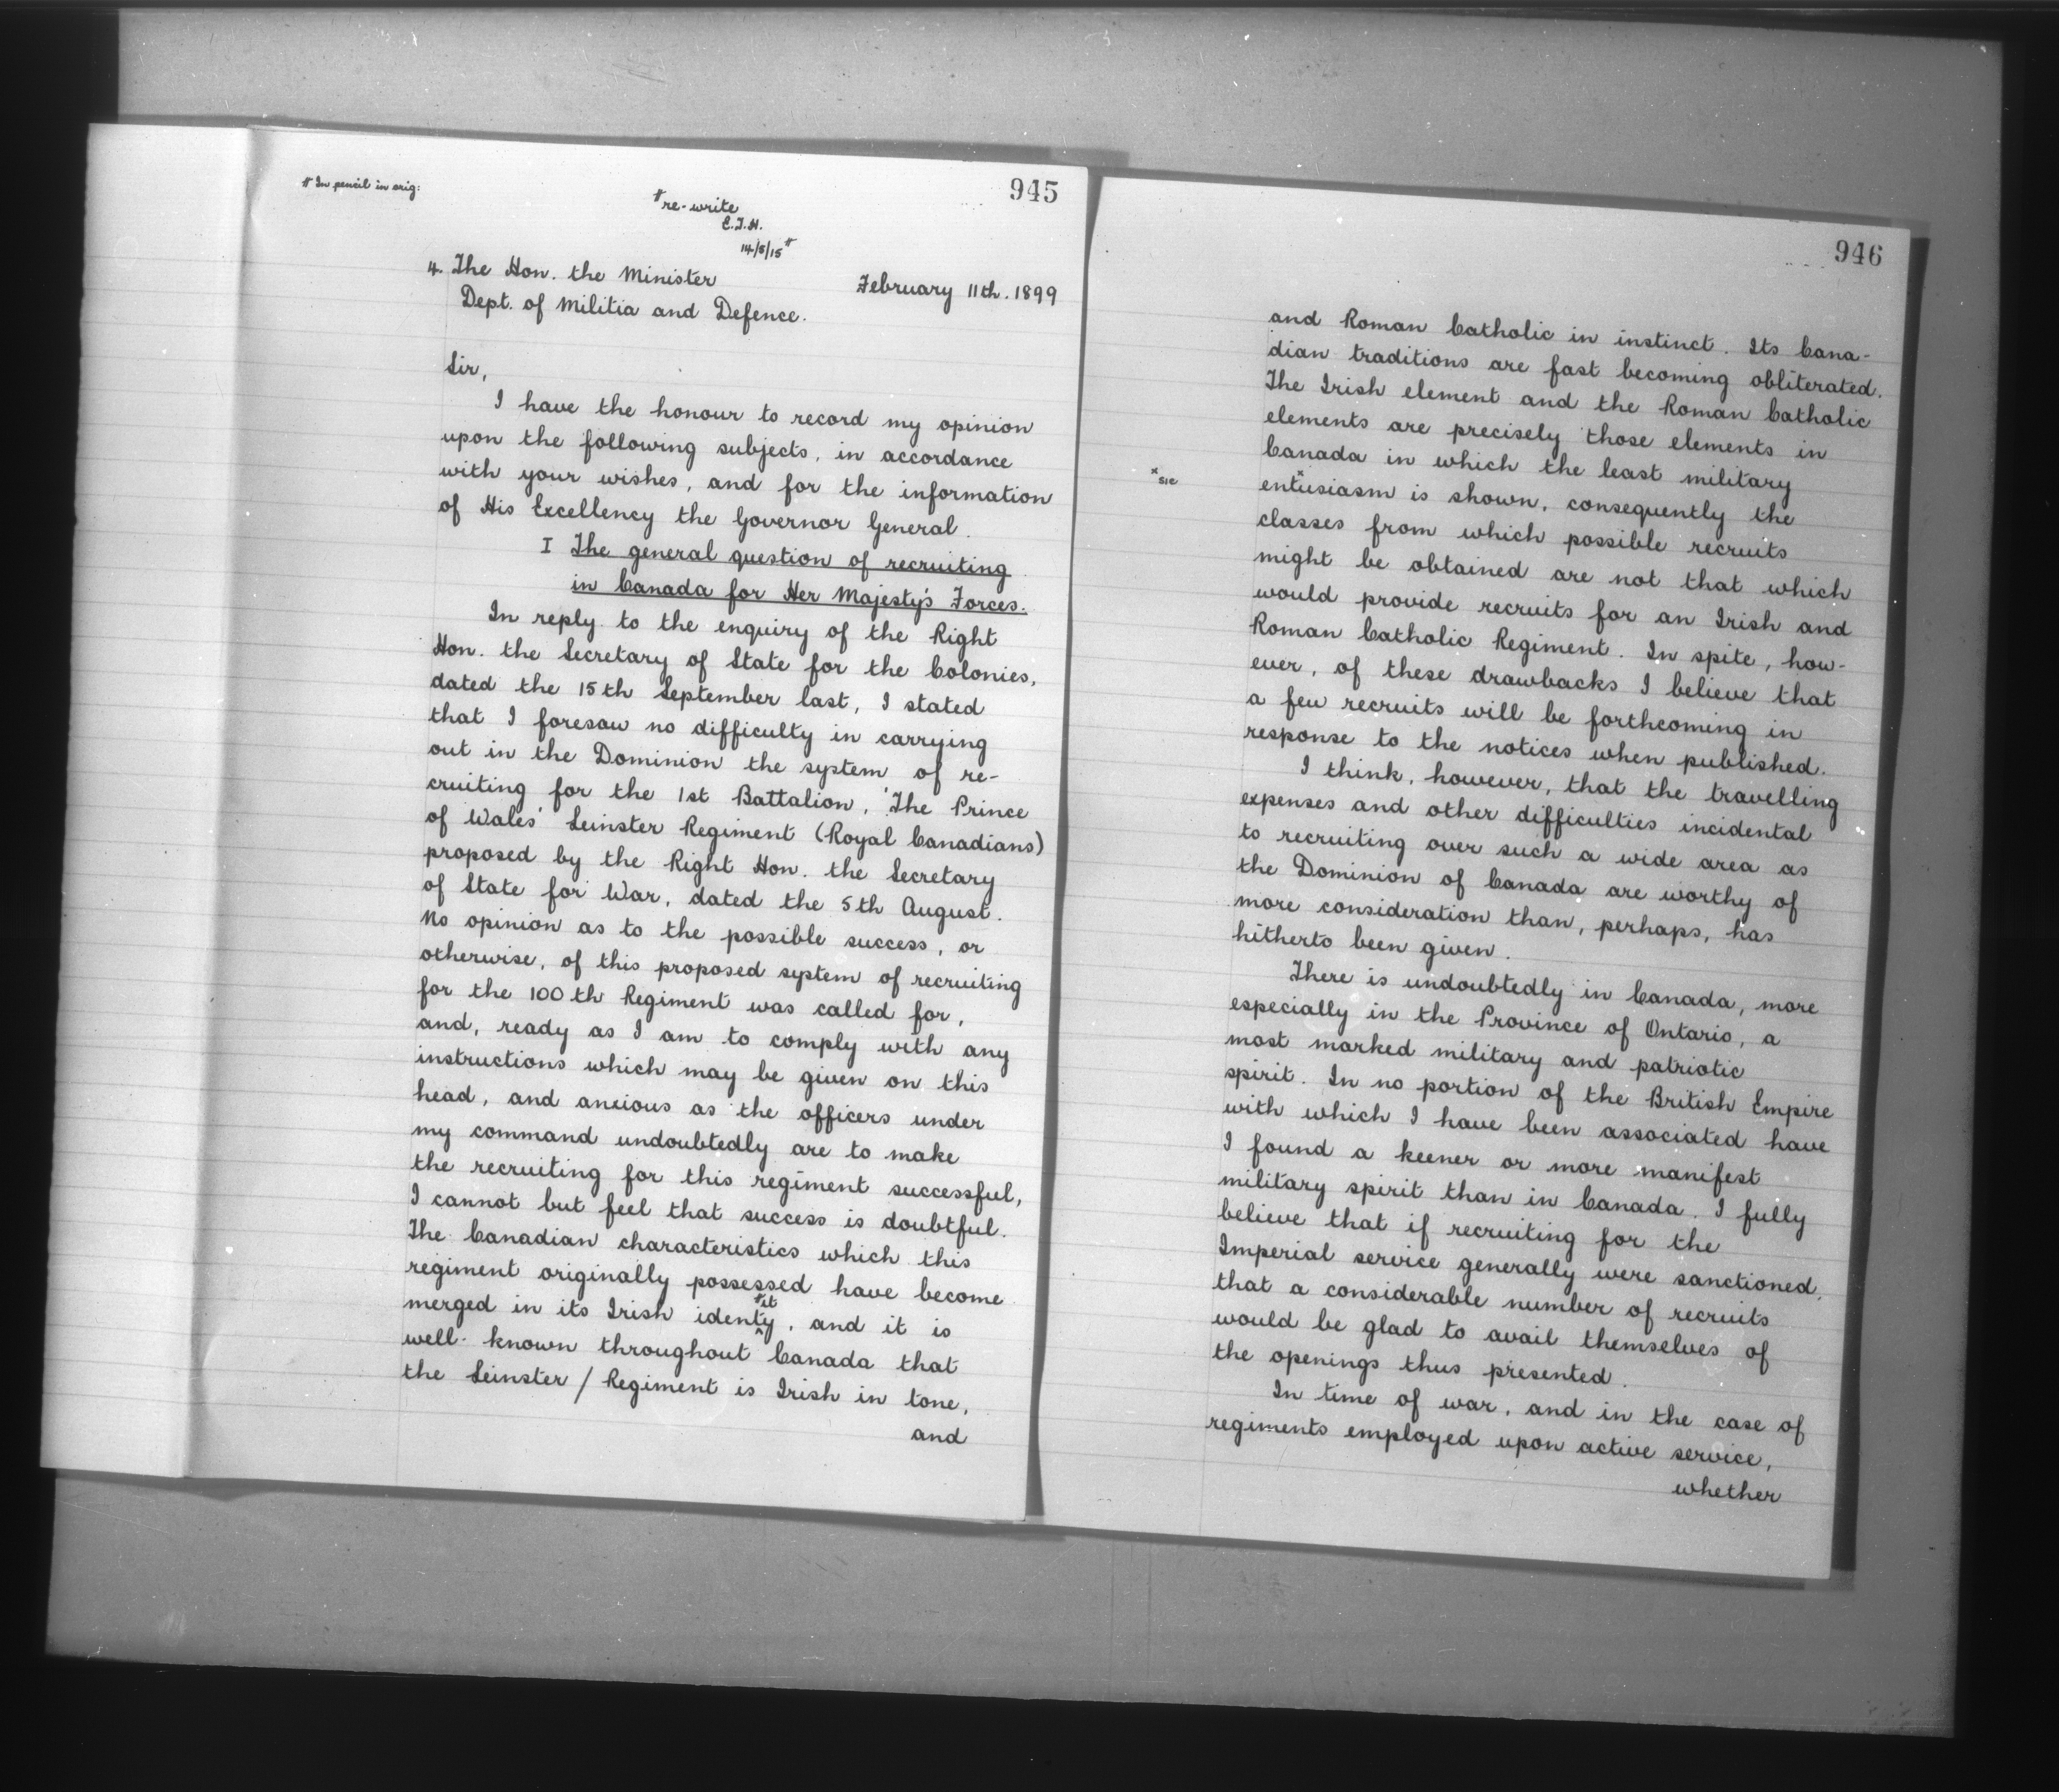 # In pencil in orig:
945
# re-write
E.T.H.
14/5/15 #
4. The Hon. the Minister
February 11th. 1899
Dept. of Militia and Defence.
Sir,
I have the honour to record my opinion
upon the following subjects, in accordance
with your wishes, and for the information
of His Excellency the Governor General.
I The general question of recruiting
in Canada for Her Majesty's Forces.
In reply to the enquiry of the Right
Hon. the Secretary of State for the Colonies,
dated the 15th September last, I stated
that I foresaw no difficulty in carrying
out in the Dominion the system of re-
cruiting for the 1st Battalion, 'The Prince
of Wales' Leinster Regiment (Royal Canadians)
proposed by the Right Hon. the Secretary
of State for War, dated the 5th August.
No opinion as to the possible success, or
otherwise, of this proposed system of recruiting
for the 100th Regiment was called for,
and, ready as I am to comply with any
instructions which may be given on this
head, and anxious as the officers under
my command undoubtedly are to make
the recruiting for this regiment successful,
I cannot but feel that success is doubtful.
The Canadian characteristics which this
regiment originally possessed have become
merged in its Irish identy, and it is
#it
^
well-known throughout Canada that
the Leinster / Regiment is Irish in tone,
and
946
and Roman Catholic in instinct. Its Cana-
dian traditions are fast becoming obliterated.
The Irish element and the Roman Catholic
elements are precisely those elements in
Canada in which the least military
x sic
entusiasm x is shown, consequently the
classes from which possible recruits
might be obtained are not that which
would provide recruits for an Irish and
Roman Catholic Regiment. In spite, how-
ever, of these drawbacks I believe that
a few recruits will be forthcoming in
response to the notices when published.
I think, however, that the travelling
expenses and other difficulties incidental
to recruiting over such a wide area as
the Dominion of Canada are worthy of
more consideration than, perhaps, has
hitherto been given.
There is undoubtedly in Canada, more
especially in the Province of Ontario, a
most marked military and patriotic
spirit. In no portion of the British Empire
with which I have been associated have
I found a keener or more manifest
military spirit than in Canada. I fully
believe that if recruiting for the
Imperial service generally were sanctioned,
that a considerable number of recruits
would be glad to avail themselves of
the openings thus presented.
In time of war, and in the case of
regiments employed upon active service,
whether